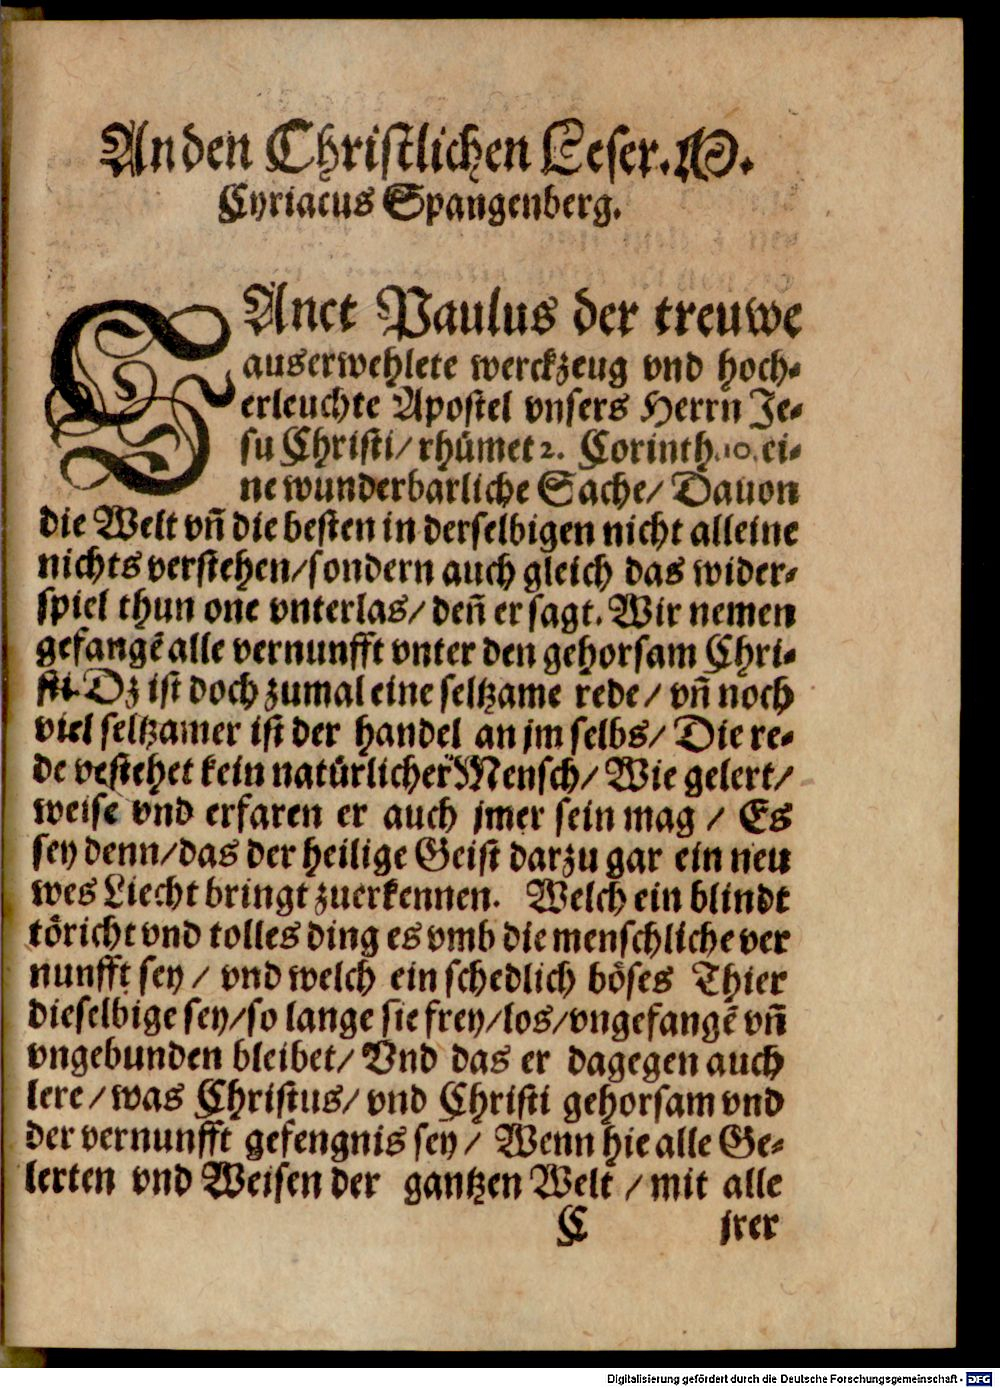 An den Christlichen Leser. M.
Cyriacus Spangenberg.
SAnct Paulus der treuwe
auserwehlete werckzeug vnd hoch-
erleuchte Apostel vnsers Herrn Je-
su Christi/ rhümet 2. Corinth. 10. ei-
ne wunderbarliche Sache/ Dauon
die Welt vñ die besten in derselbigen nicht alleine
nichts verstehen/ sondern auch gleich das wider-
spiel thun one vnterlas/ deñ er sagt. Wir nemen
gefangẽ alle vernunfft vnter den gehorsam Chri-
sti. Dz ist doch zumal eine seltzame rede/ vñ noch
viel seltzamer ist der handel an jm selbs/ Die re-
de vestehet kein natürlicher Mensch/ Wie gelert/
weise vnd erfaren er auch jmer sein mag / Es
sey denn/ das der heilige Geist darzu gar ein neu
wes Liecht bringt zuerkennen. Welch ein blindt
töricht vnd tolles ding es vmb die menschliche ver
nunfft sey / vnd welch ein schedlich böses Thier
dieselbige sey/ so lange sie frey/ los/ vngefangẽ vñ
vngebunden bleibet/ Vnd das er dagegen auch
lere / was Christus/ vnd Christi gehorsam vnd
der vernunfft gefengnis sey / Wenn hie alle Ge-
lerten vnd Weisen der gantzen Welt / mit alle
C jrer
Digitalisierung gefördert durch die Deutsche Forschungsgemeinschaft - DFG